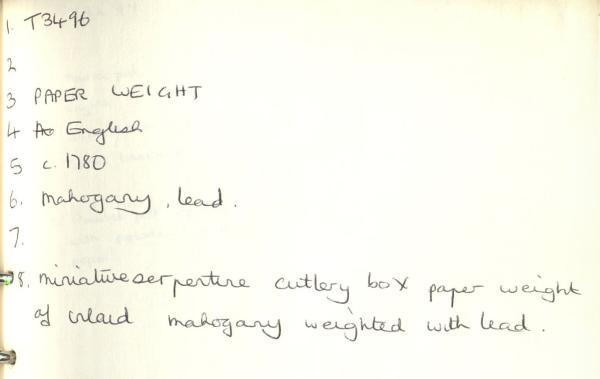 1. T3496
2
3 PAPER WEIGHT
4 Ao English
5 c. 1780
6. Mahogany, lead.
7.
8. miniature serpentine cutlery box paper weight
of inlaid mahogany weighted with lead.